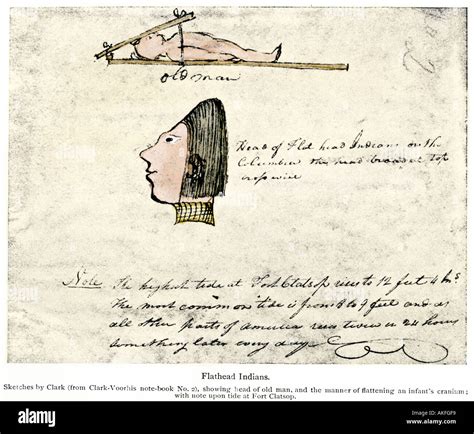 old man
Head of Flat head Indians on the
Columbia the head broad at top
crosswise
Note The highest tide at Fort Clatsop rises to 12 feet 4 Ins
The most common tide is from 8 to 9 feet and as
all other parts of america rises twice in 24 hours
something later every day
Flathead Indians.
Sketches by Clark (from Clark-Voorhis note-book No. 2), showing head of old man, and the manner of flattening an infant's cranium;
with note upon tide at Fort Clatsop.
alamy stock photo